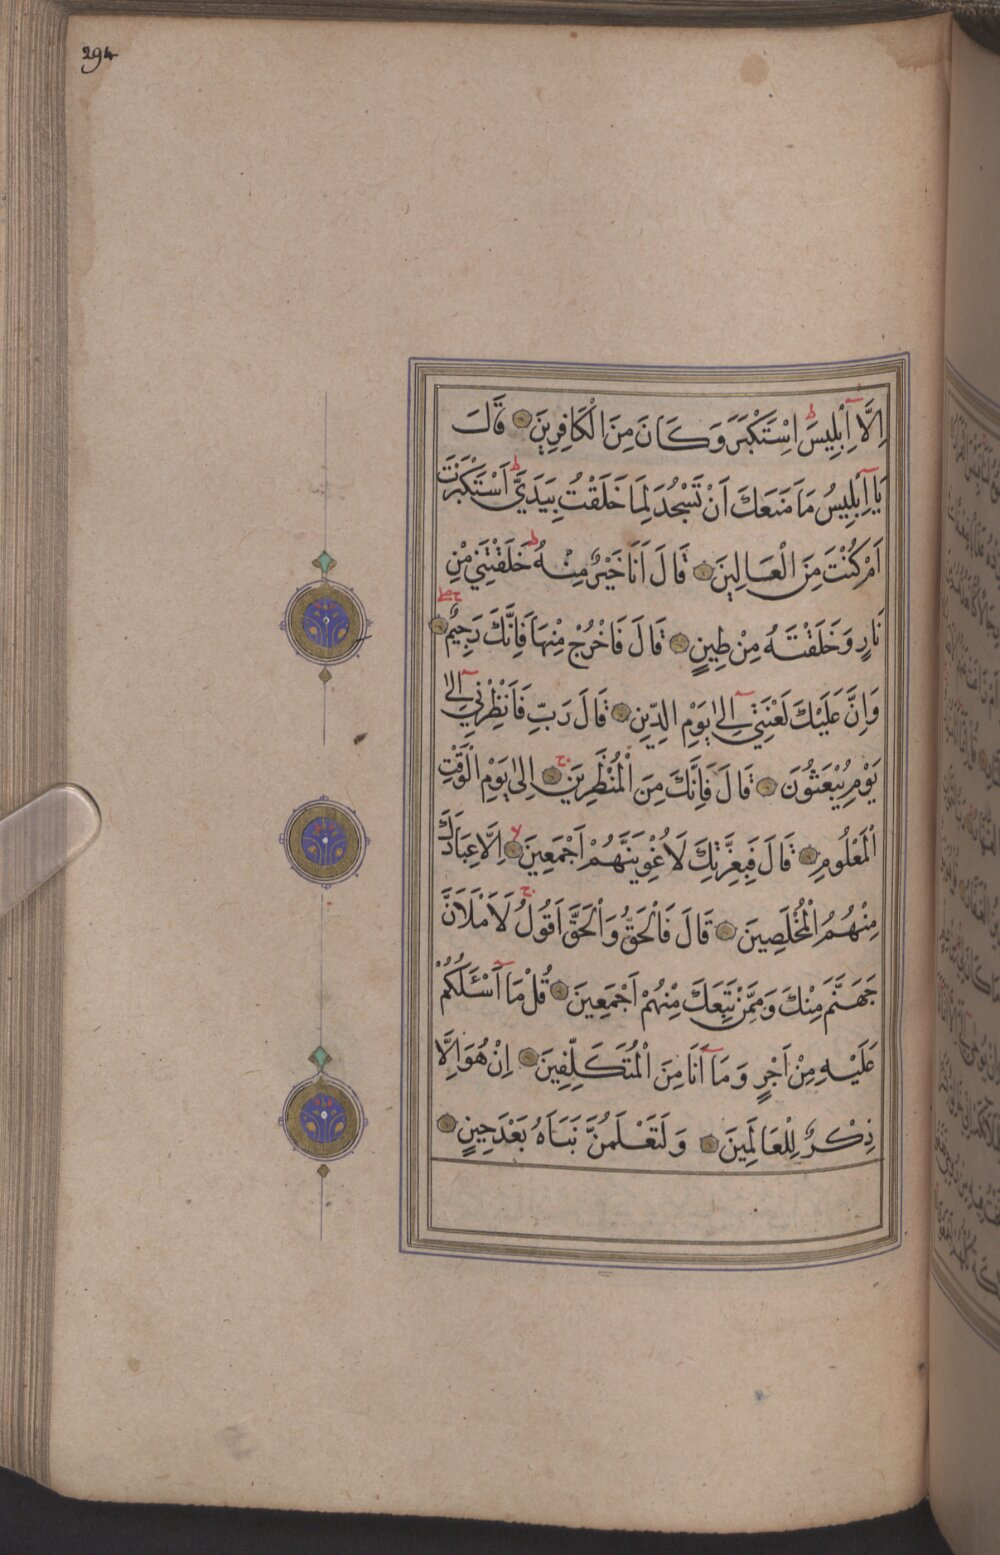 294
اِلَّا اِبْلِيسَ اِسْتَكْبَرَ وَكَانَ مِنَ الْكَافِرِينَ قَالَ
يَا اِبْلِيسُ مَا مَنَعَكَ اَنْ تَسْجُدَ لِمَا خَلَقْتُ بِيَدَيَّ اَسْتَكْبَرْتَ
اَمْ كُنْتَ مِنَ الْعَالِينَ قَالَ اَنَا خَيْرٌ مِنْهُ خَلَقْتَنِي مِنْ
نَارٍ وَخَلَقْتَهُ مِنْ طِينٍ قَالَ فَاخْرُجْ مِنْهَا فَاِنَّكَ رَجِيمٌ
وَاِنَّ عَلَيْكَ لَعْنَتِي اِلٰى يَوْمِ الدِّينِ قَالَ رَبِّ فَاَنْظِرْنِي اِلٰى
يَوْمِ يُبْعَثُونَ قَالَ فَاِنَّكَ مِنَ الْمُنْظَرِينَ اِلٰى يَوْمِ الْوَقْتِ
الْمَعْلُومِ قَالَ فَبِعِزَّتِكَ لَاُغْوِيَنَّهُمْ اَجْمَعِينَ اِلَّا عِبَادَكَ
مِنْهُمُ الْمُخْلَصِينَ قَالَ فَالْحَقُّ وَالْحَقَّ اَقُولُ لَاَمْلَاَنَّ
جَهَنَّمَ مِنْكَ وَمِمَّنْ تَبِعَكَ مِنْهُمْ اَجْمَعِينَ قُلْ مَا اَسْئَلُكُمْ
عَلَيْهِ مِنْ اَجْرٍ وَمَا اَنَا مِنَ الْمُتَكَلِّفِينَ اِنْ هُوَ اِلَّا
ذِكْرٌ لِلْعَالَمِينَ وَلَتَعْلَمُنَّ نَبَاَهُ بَعْدَ حِينٍ